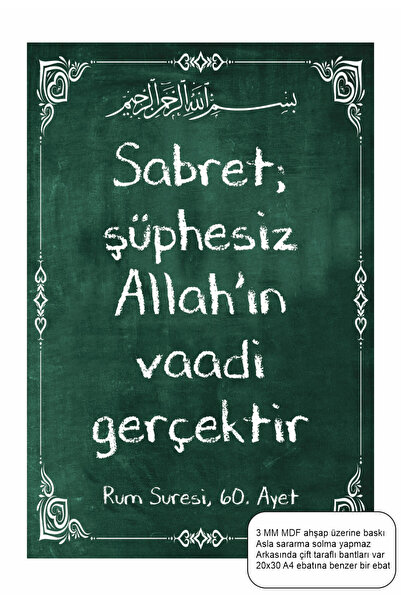 بسم الله الرحمن الرحيم
Sabret;
şüphesiz
Allah'ın
vaadi
gerçektir
Rum Suresi, 60. Ayet
3 MM MDF ahşap üzerine baskı
Asla sararma solma yapmaz
Arkasında çift taraflı bantları var
20x30 A4 ebatına benzer bir ebat